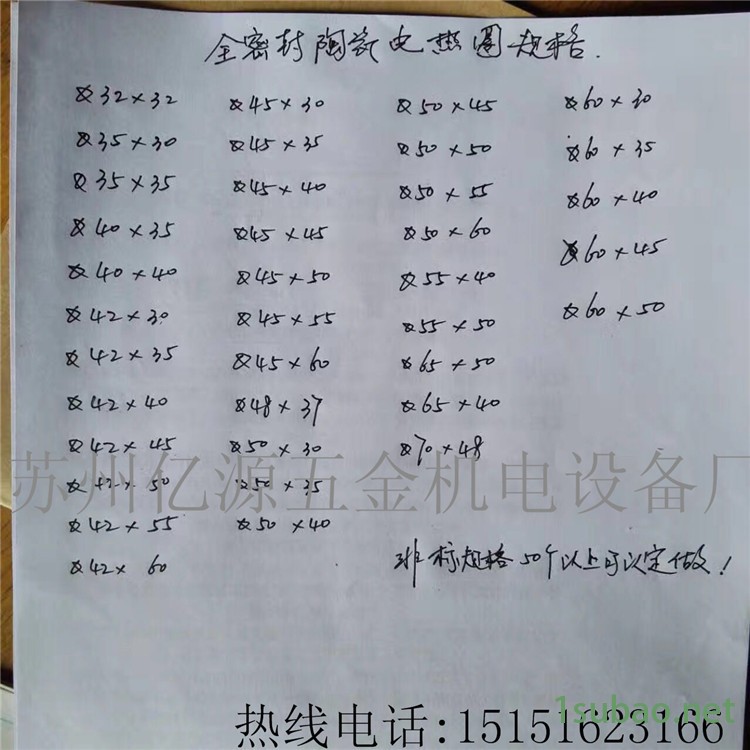 全密封陶瓷电热圈规格.
Φ32×32
Φ35×30
Φ35×35
Φ40×35
Φ40×40
Φ42×30
Φ42×35
Φ42×40
Φ42×45
Φ42×50
Φ42×55
Φ42×60
Φ45×30
Φ45×35
Φ45×40
Φ45×45
Φ45×50
Φ45×55
Φ45×60
Φ48×37
Φ50×30
Φ50×35
Φ50×40
Φ50×45
Φ50×50
Φ50×55
Φ50×60
Φ55×40
Φ55×50
Φ65×50
Φ65×40
Φ70×48
Φ60×30
Φ60×35
Φ60×40
Φ60×45
Φ60×50
非标规格50个以上可以定做!
苏州亿源五金机电设备厂
1subao.net
热线电话:15151623166